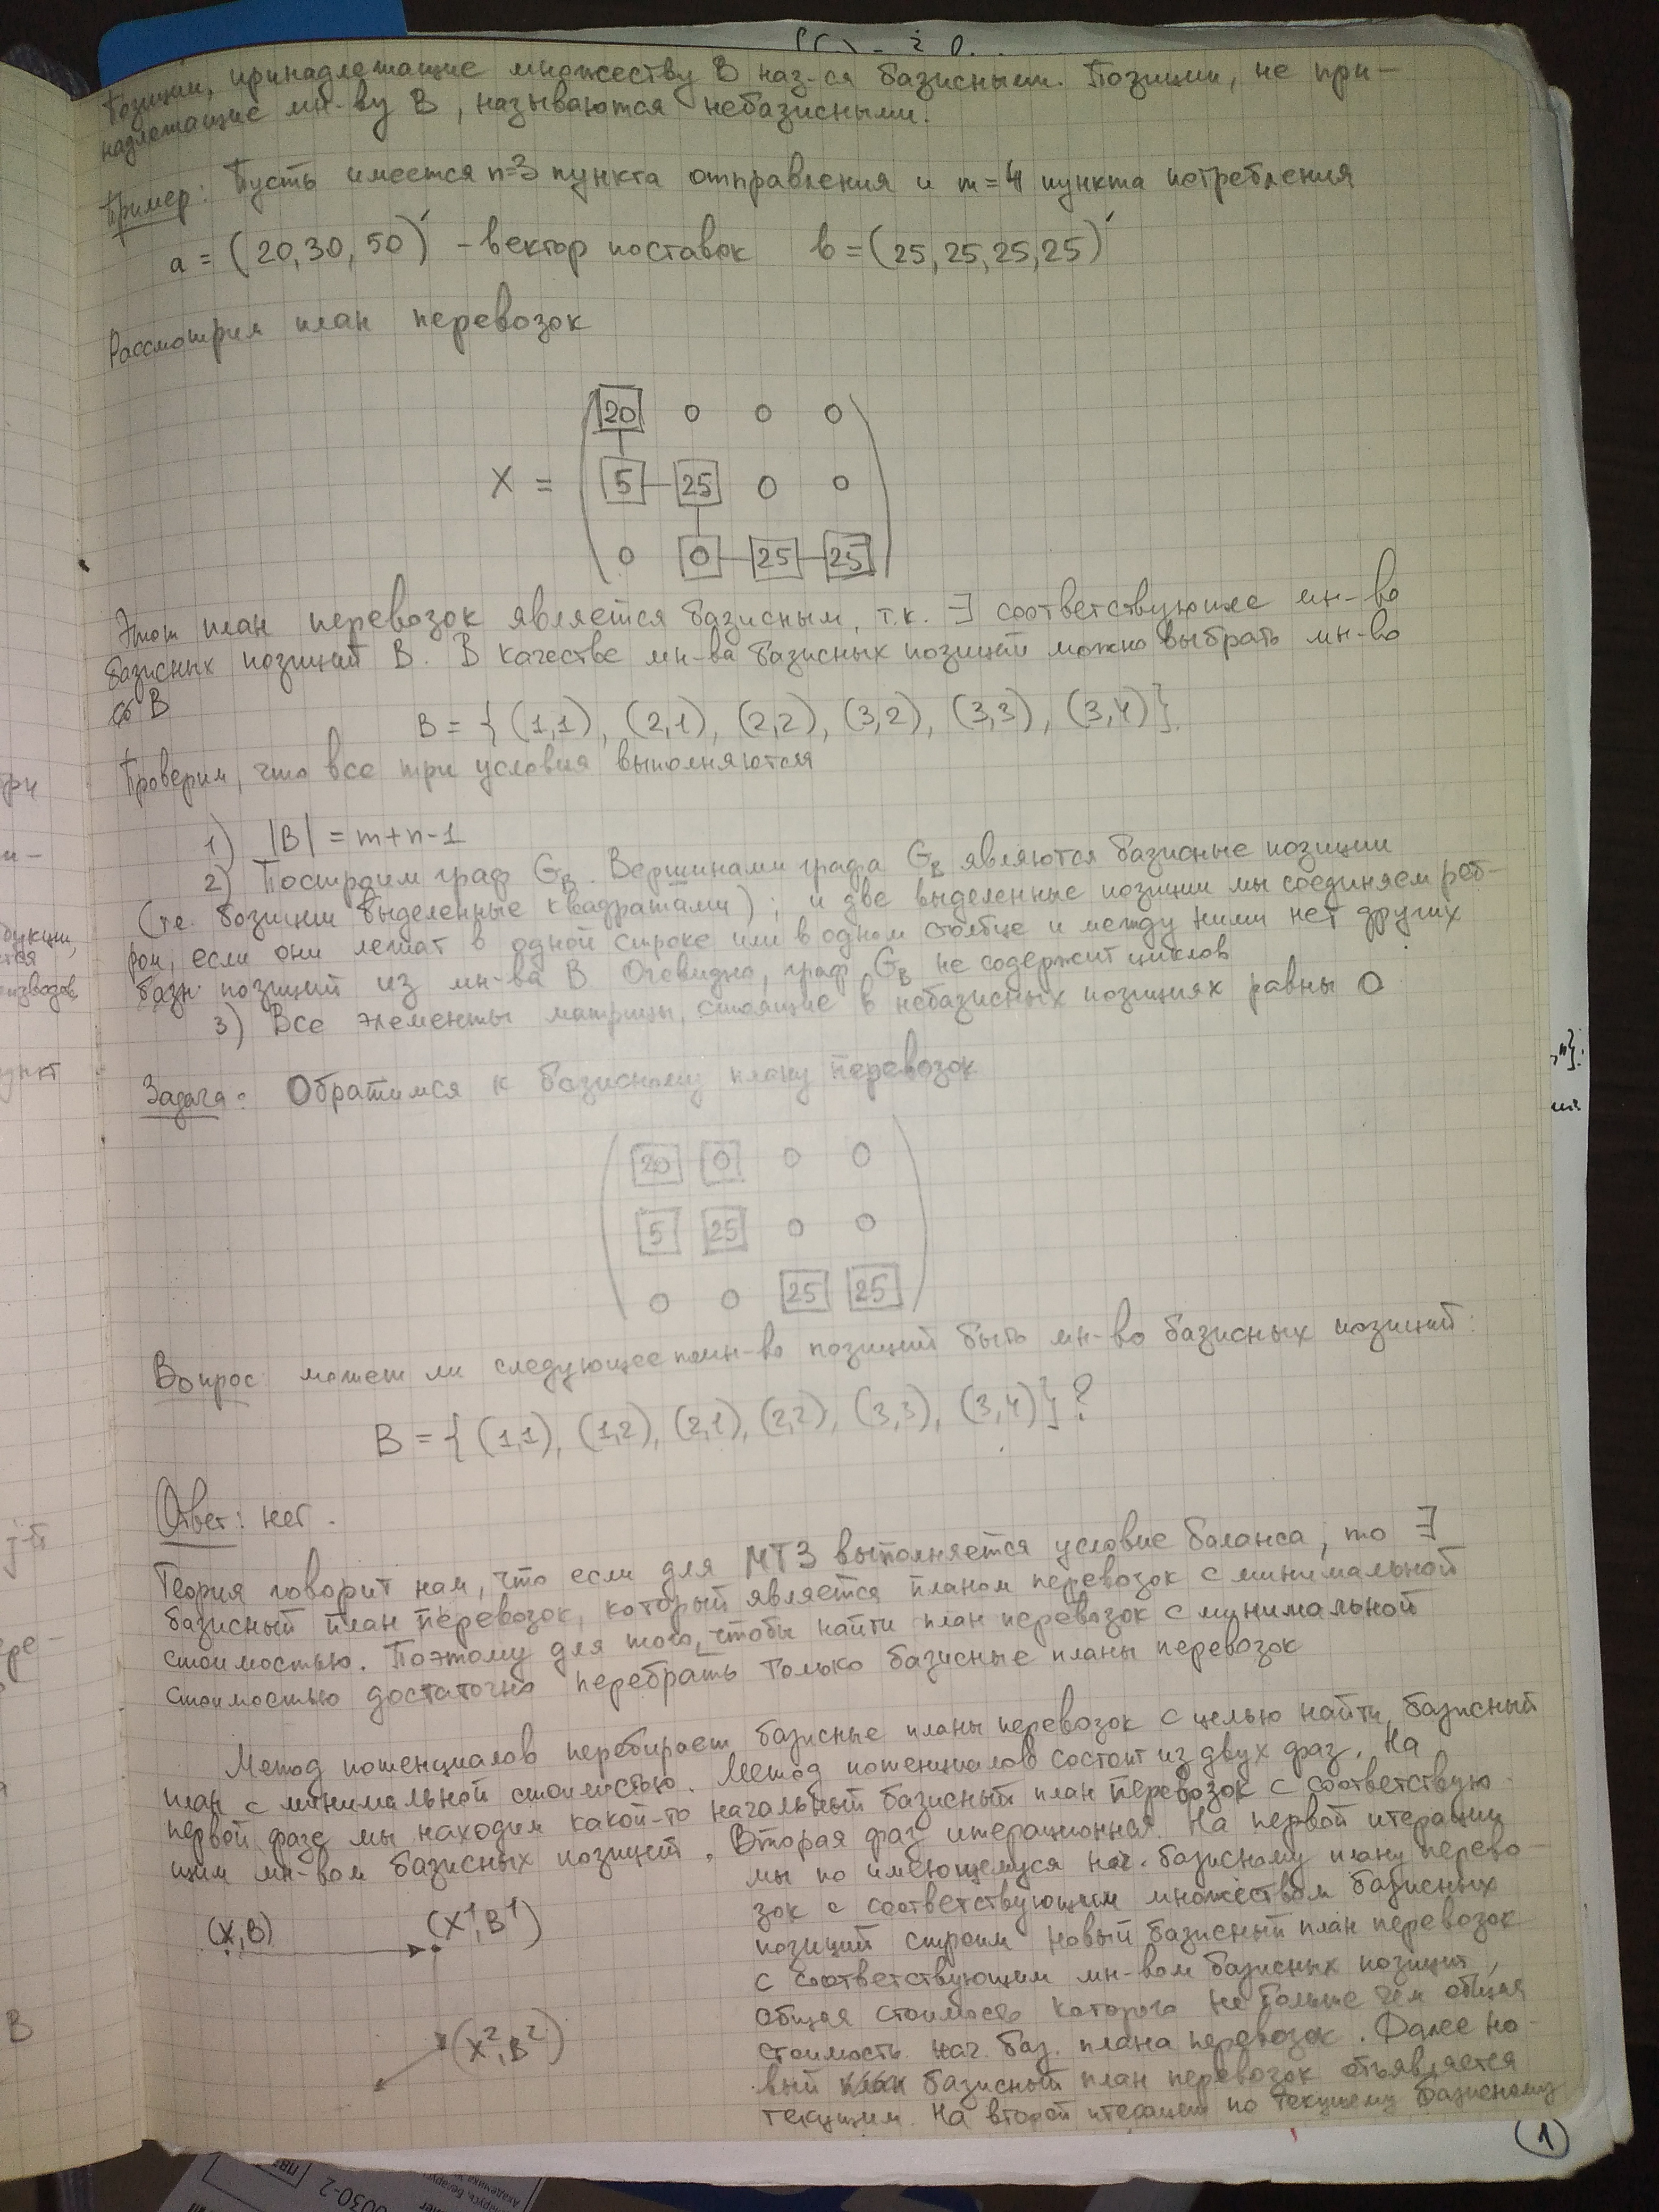 Позиции, принадлежащие множеству B наз-ся базисными. Позиции, не при-
надлежащие мн-ву B, называются небазисными.
Пример: Пусть имеется n=3 пункта отправления и m=4 пункта потребления
a = (20, 30, 50)' - вектор поставок b = (25, 25, 25, 25)'
Рассмотрим план перевозок
20 0 0 0
X = 5 25 0 0
0 0 25 25
Этот план перевозок является базисным, т.к. ∃ соответствующее мн-во
базисных позиций B. В качестве мн-ва базисных позиций можно выбрать мн-во
B
B = { (1,1), (2,1), (2,2), (3,2), (3,3), (3,4)}.
Проверим, что все три условия выполняются
1) |B| = m+n-1
2) Построим граф G_B. Вершинами графа G_B являются базисные позиции
(т.е. позиции выделенные квадратами); и две выделенные позиции мы соединяем реб-
ром, если они лежат в одной строке или в одном столбце и между ними нет других
базн. позиций из мн-ва B. Очевидно, граф G_B не содержит циклов
3) Все элементы матрицы, стоящие в небазисных позициях равны 0
Задача: Обратимся к базисному плану перевозок
20 0 0 0
5 25 0 0
0 0 25 25
Вопрос: может ли следующее мн-во позиций быть мн-во базисных позиций:
B = { (1,1), (1,2), (2,1), (2,2), (3,3), (3,4)}?
Ответ: нет.
Теория говорит нам, что если для МТЗ выполняется условие баланса, то ∃
базисный план перевозок, который является планом перевозок с минимальной
стоимостью. Поэтому для того, чтобы найти план перевозок с минимальной
стоимостью достаточно перебрать только базисные планы перевозок
Метод потенциалов перебирает базисные планы перевозок с целью найти базисный
план с минимальной стоимостью. Метод потенциалов состоит из двух фаз. На
первой фазе мы находим какой-то начальный базисный план перевозок с соответствую-
щим мн-вом базисных позиций. Вторая фаз итерационная. На первой итерации
мы по имеющемуся нач. базисному плану перево-
зок с соответствующим множеством базисных
позиций строим новый базисный план перевозок
с соответствующим мн-вом базисных позиций,
общая стоимость которого не больше чем общая
стоимость нач. баз. плана перевозок. Далее но-
вый базисный план перевозок объявляется
текущим. На второй итерации по текущему базисному
(X, B)
(X¹, B¹)
(X², B²)
1